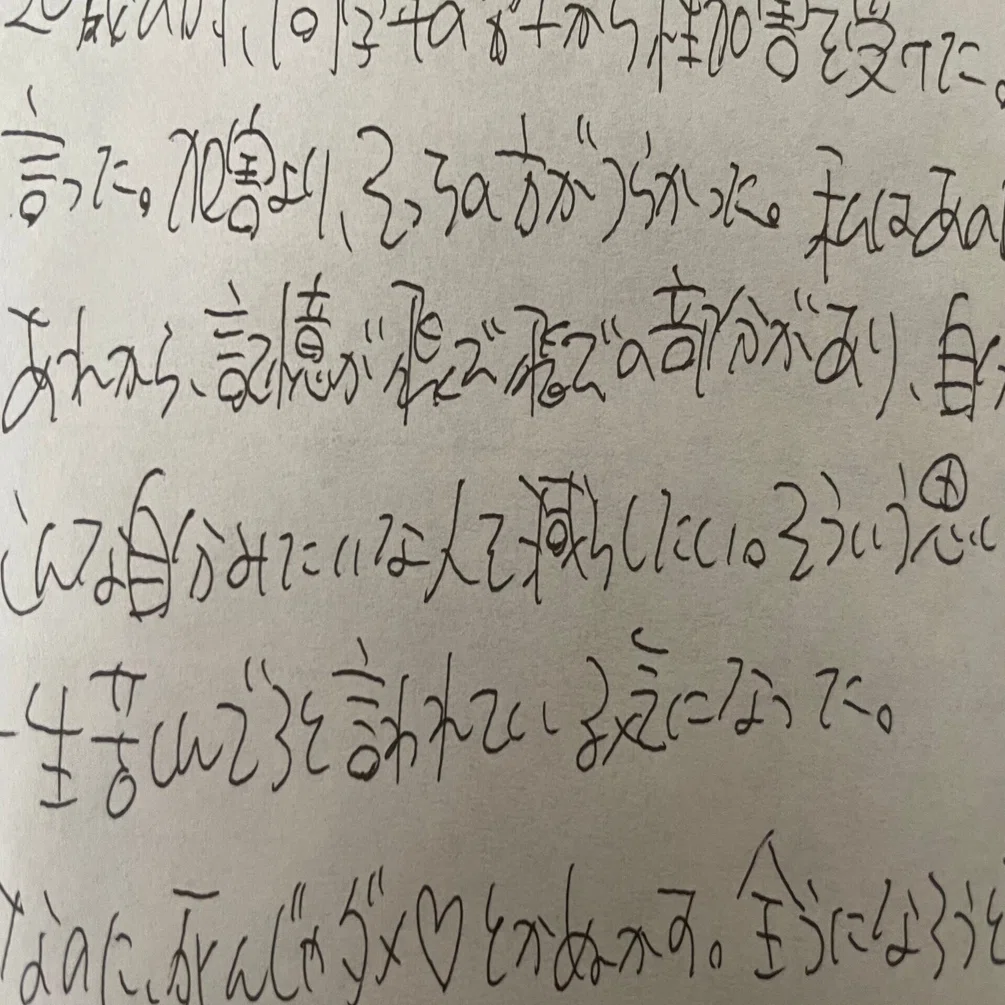 20歳の時、同学年の女子から性加害を受けた。
言った。加害より、そっちの方がつらかった。私はあの
あれから、記憶が飛び飛びの部分があり、自分
しんな自分みたいな人を減らしたい。そういう思い
一生苦しんでろと言われている気になった。
なのに、死んじゃダメ♡とかぬかす。全うになろうと